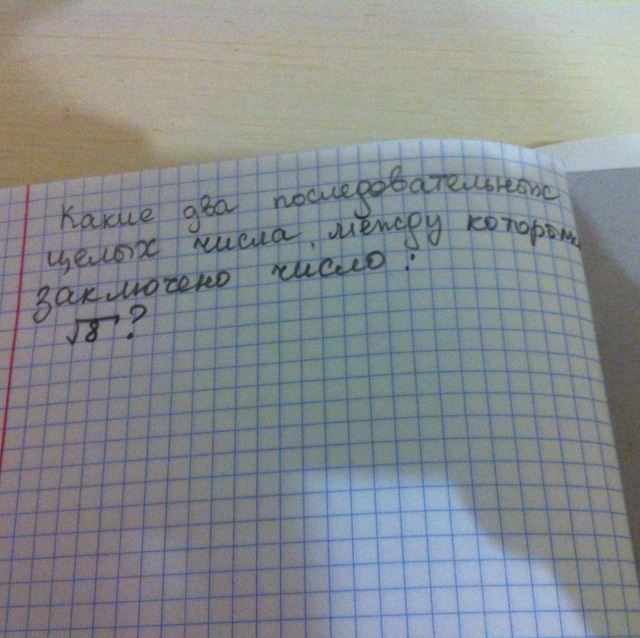 Какие два последовательных
целых числа, между которым
заключено число:
√8?